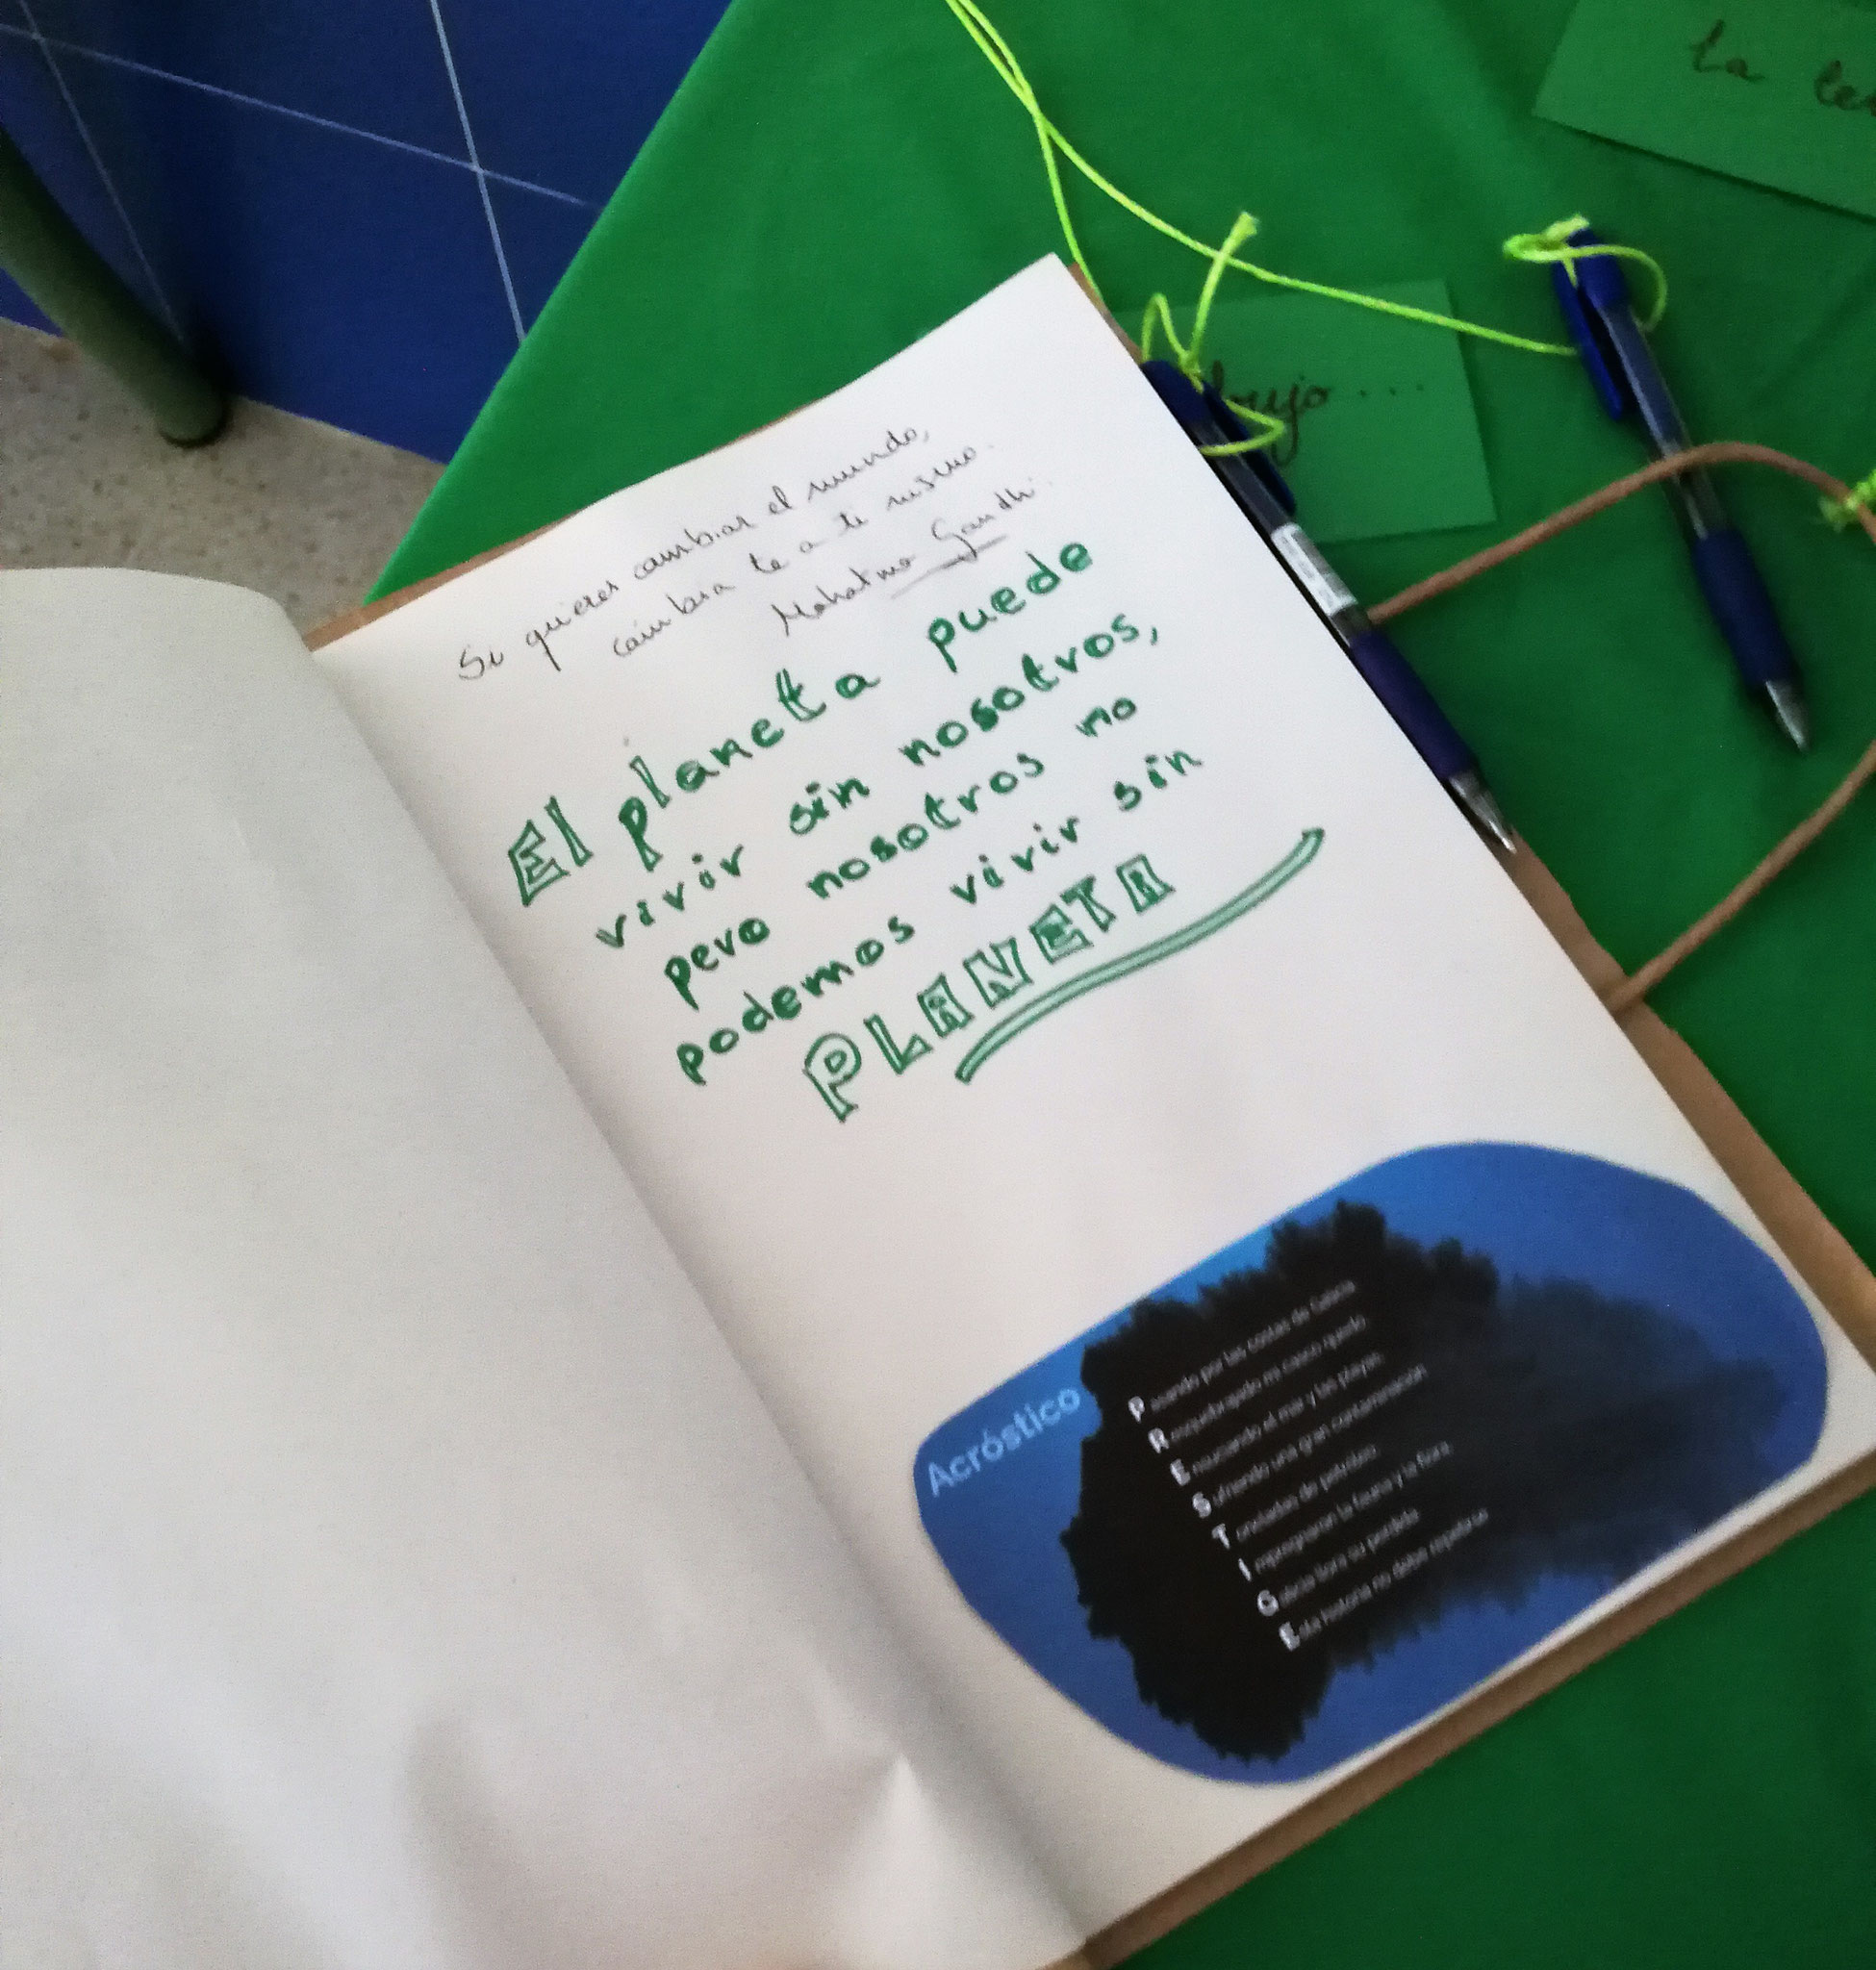 Si quieres cambiar el mundo,
cambia te a ti mismo.
Mahatma Gandhi.
El planeta puede
vivir sin nosotros,
pero nosotros no
podemos vivir sin
PLANETA
Acróstico
Pasando por las costas de Galicia
Resquebrajado mi casco quedó
Ensuciando el mar y las playas,
Sufriendo una gran contaminación
Toneladas de petróleo
Impregnaron la fauna y la flora.
Galicia llora su pérdida
Esta historia no debe repetirse
bujo ...
la